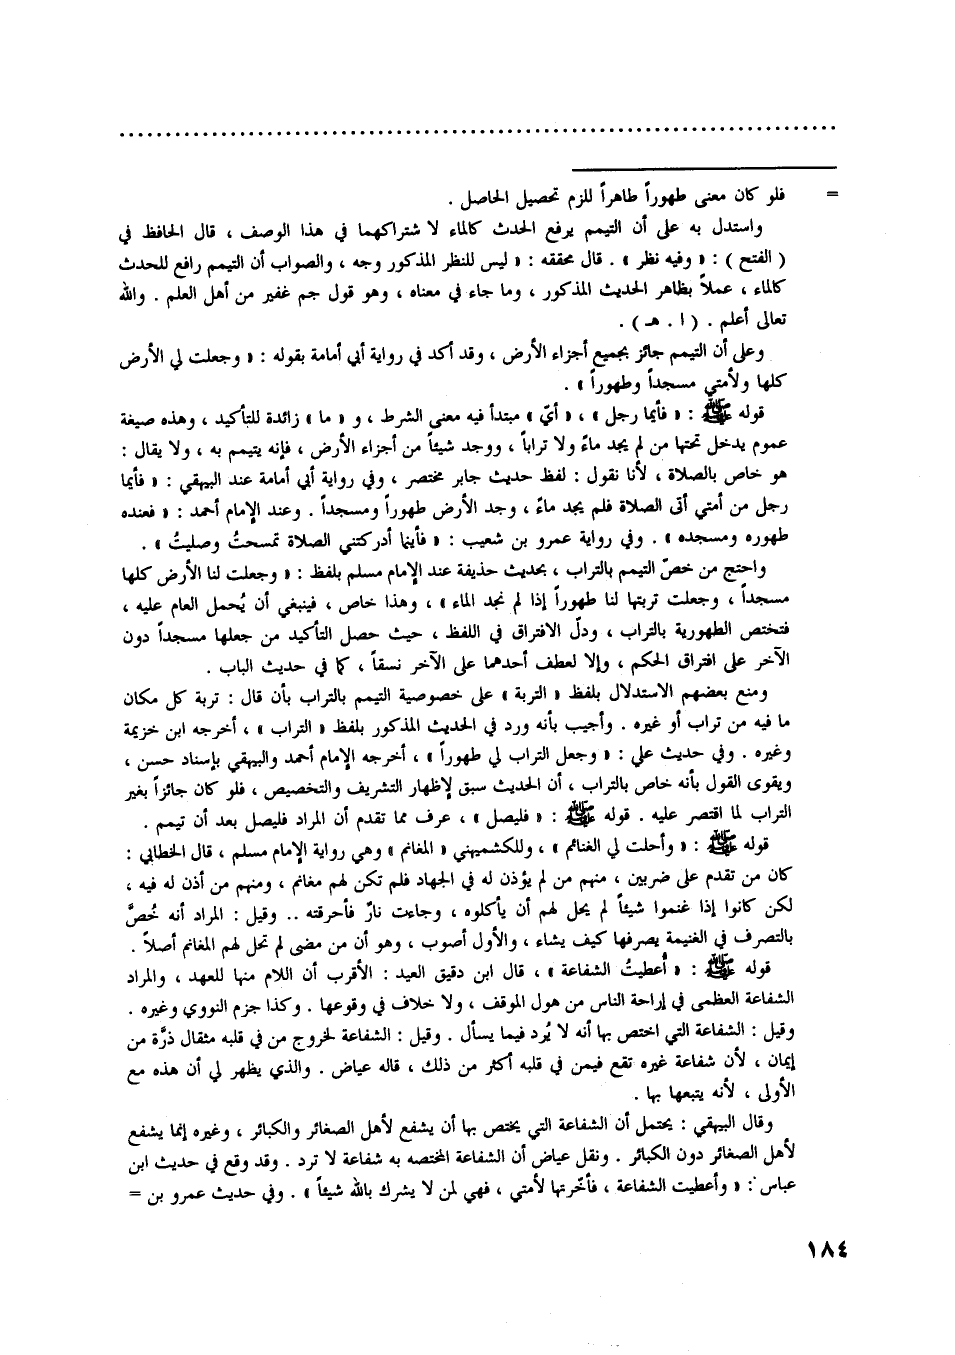 = فلو كان معنى طهوراً طاهراً للزم تحصيل الحاصل .
واستدل به على أن التيمم يرفع الحدث كالماء لا شتراكهما في هذا الوصف ، قال الحافظ في
( الفتح ) : « وفيه نظر » . قال محققه : « ليس للنظر المذكور وجه ، والصواب أن التيمم رافع للحدث
كالماء ، عملاً بظاهر الحديث المذكور ، وما جاء في معناه ، وهو قول جم غفير من أهل العلم . والله
تعالى أعلم . ( ا . هـ ) .
وعلى أن التيمم جائز بجميع أجزاء الأرض ، وقد أكد في رواية أبي أمامة بقوله : « وجعلت لي الأرض
كلها ولأمتي مسجداً وطهوراً » .
قوله ﷺ : « فأيما رجل » ، « أيّ » مبتدأ فيه معنى الشرط ، و « ما » زائدة للتأكيد ، وهذه صيغة
عموم يدخل تحتها من لم يجد ماءً ولا تراباً ، ووجد شيئاً من أجزاء الأرض ، فإنه يتيمم به ، ولا يقال :
هو خاص بالصلاة ، لأنا نقول : لفظ حديث جابر مختصر ، وفي رواية أبي أمامة عند البيهقي : « فأيما
رجل من أمتي أتى الصلاة فلم يجد ماءً ، وجد الأرض طهوراً ومسجداً . وعند الإمام أحمد : « فعنده
طهوره ومسجده » . وفي رواية عمرو بن شعيب : « فأينما أدركتني الصلاة تمسحتُ وصليتُ » .
واحتج من خصّ التيمم بالتراب ، بحديث حذيفة عند الإمام مسلم بلفظ : « وجعلت لنا الأرض كلها
مسجداً ، وجعلت تربتها لنا طهوراً إذا لم نجد الماء » ، وهذا خاص ، فينبغي أن يُحمل العام عليه ،
فتختص الطهورية بالتراب ، ودلّ الافتراق في اللفظ ، حيث حصل التأكيد من جعلها مسجداً دون
الآخر على افتراق الحكم ، وإلا لعطف أحدهما على الآخر نسقاً ، كما في حديث الباب .
ومنع بعضهم الاستدلال بلفظ « التربة » على خصوصية التيمم بالتراب بأن قال : تربة كل مكان
ما فيه من تراب أو غيره . وأجيب بأنه ورد في الحديث المذكور بلفظ « التراب » ، أخرجه ابن خزيمة
وغيره . وفي حديث علي : « وجعل التراب لي طهوراً » ، أخرجه الإمام أحمد والبيهقي بإسناد حسن ،
ويقوى القول بأنه خاص بالتراب ، أن الحديث سبق لإظهار التشريف والتخصيص ، فلو كان جائزاً بغير
التراب لما اقتصر عليه . قوله ﷺ : « فليصل » ، عرف مما تقدم أن المراد فليصل بعد أن تيمم .
قوله ﷺ : « وأحلت لي الغنائم » ، وللكشميهني « المغانم » وهي رواية الإمام مسلم ، قال الخطابي :
كان من تقدم على ضربين ، منهم من لم يؤذن له في الجهاد فلم تكن لهم مغانم ، ومنهم من أذن له فيه ،
لكن كانوا إذا غنموا شيئاً لم يحل لهم أن يأكلوه ، وجاءت نارٌ فأحرقته .. وقيل : المراد أنه خُصَّ
بالتصرف في الغنيمة يصرفها كيف يشاء ، والأول أصوب ، وهو أن من مضى لم تحل لهم المغانم أصلاً .
قوله ﷺ : « أُعطيتُ الشفاعة » ، قال ابن دقيق العيد : الأقرب أن اللام منها للعهد ، والمراد
الشفاعة العظمى في إراحة الناس من هول الموقف ، ولا خلاف في وقوعها . وكذا جزم النووي وغيره .
وقيل : الشفاعة التي اختص بها أنه لا يُرد فيما يسأل . وقيل : الشفاعة لخروج من في قلبه مثقال ذرَّة من
إيمان ، لأن شفاعة غيره تقع فيمن في قلبه أكثر من ذلك ، قاله عياض . والذي يظهر لي أن هذه مع
الأولى ، لأنه يتبعها بها .
وقال البيهقي : يحتمل أن الشفاعة التي يختص بها أن يشفع لأهل الصغائر والكبائر ، وغيره إنما يشفع
لأهل الصغائر دون الكبائر . ونقل عياض أن الشفاعة المختصه به شفاعة لا ترد . وقد وقع في حديث ابن
عباس : « وأعطيت الشفاعة ، فأخّرتها لأمتي ، فهي لمن لا يشرك بالله شيئاً » . وفي حديث عمرو بن =
١٨٤